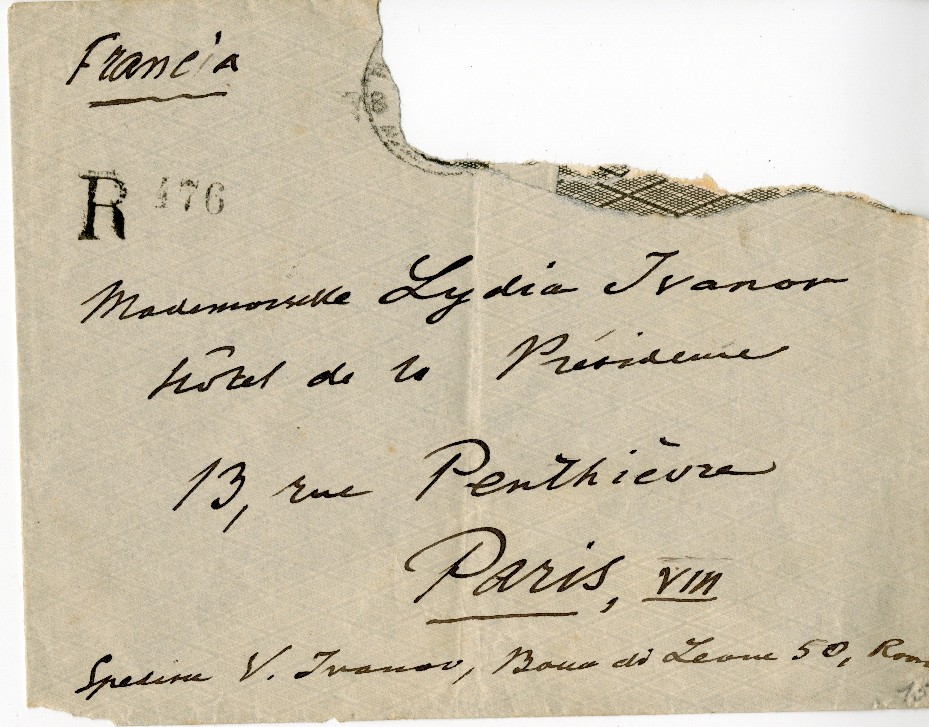 Francia
R 476
Mademoiselle Lydia Ivanov
Hôtel de la Présidence
13, rue Penthièvre
Paris, VIII
Spedisce V. Ivanov, Bocca di Leone 50, Rom
15